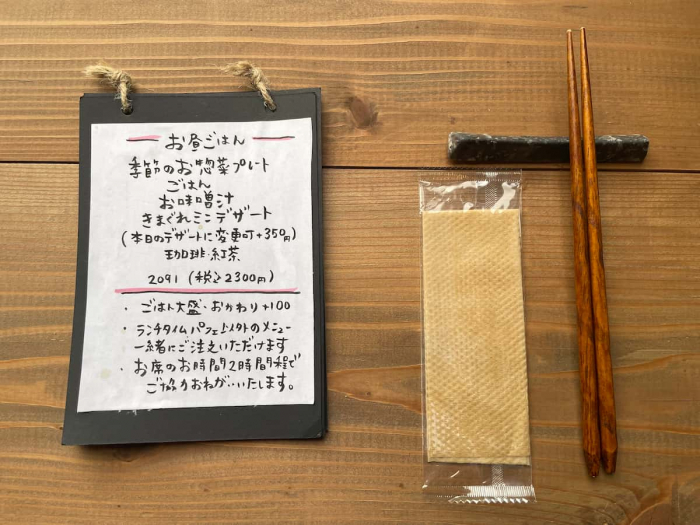 お昼ごはん
季節のお惣菜プレート
ごはん
お味噌汁
きまぐれミニデザート
(本日のデザートに変更可+350円)
珈琲・紅茶
2091 (税込2300円)
・ごはん大盛・おかわり+100
・ランチタイムパフェ以外のメニュー
一緒にご注文いただけます
・お席のお時間2時間程で
ご協力おねがいいたします。